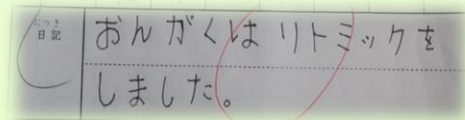 にっき
日記
おんがくは リトミックを
しました。